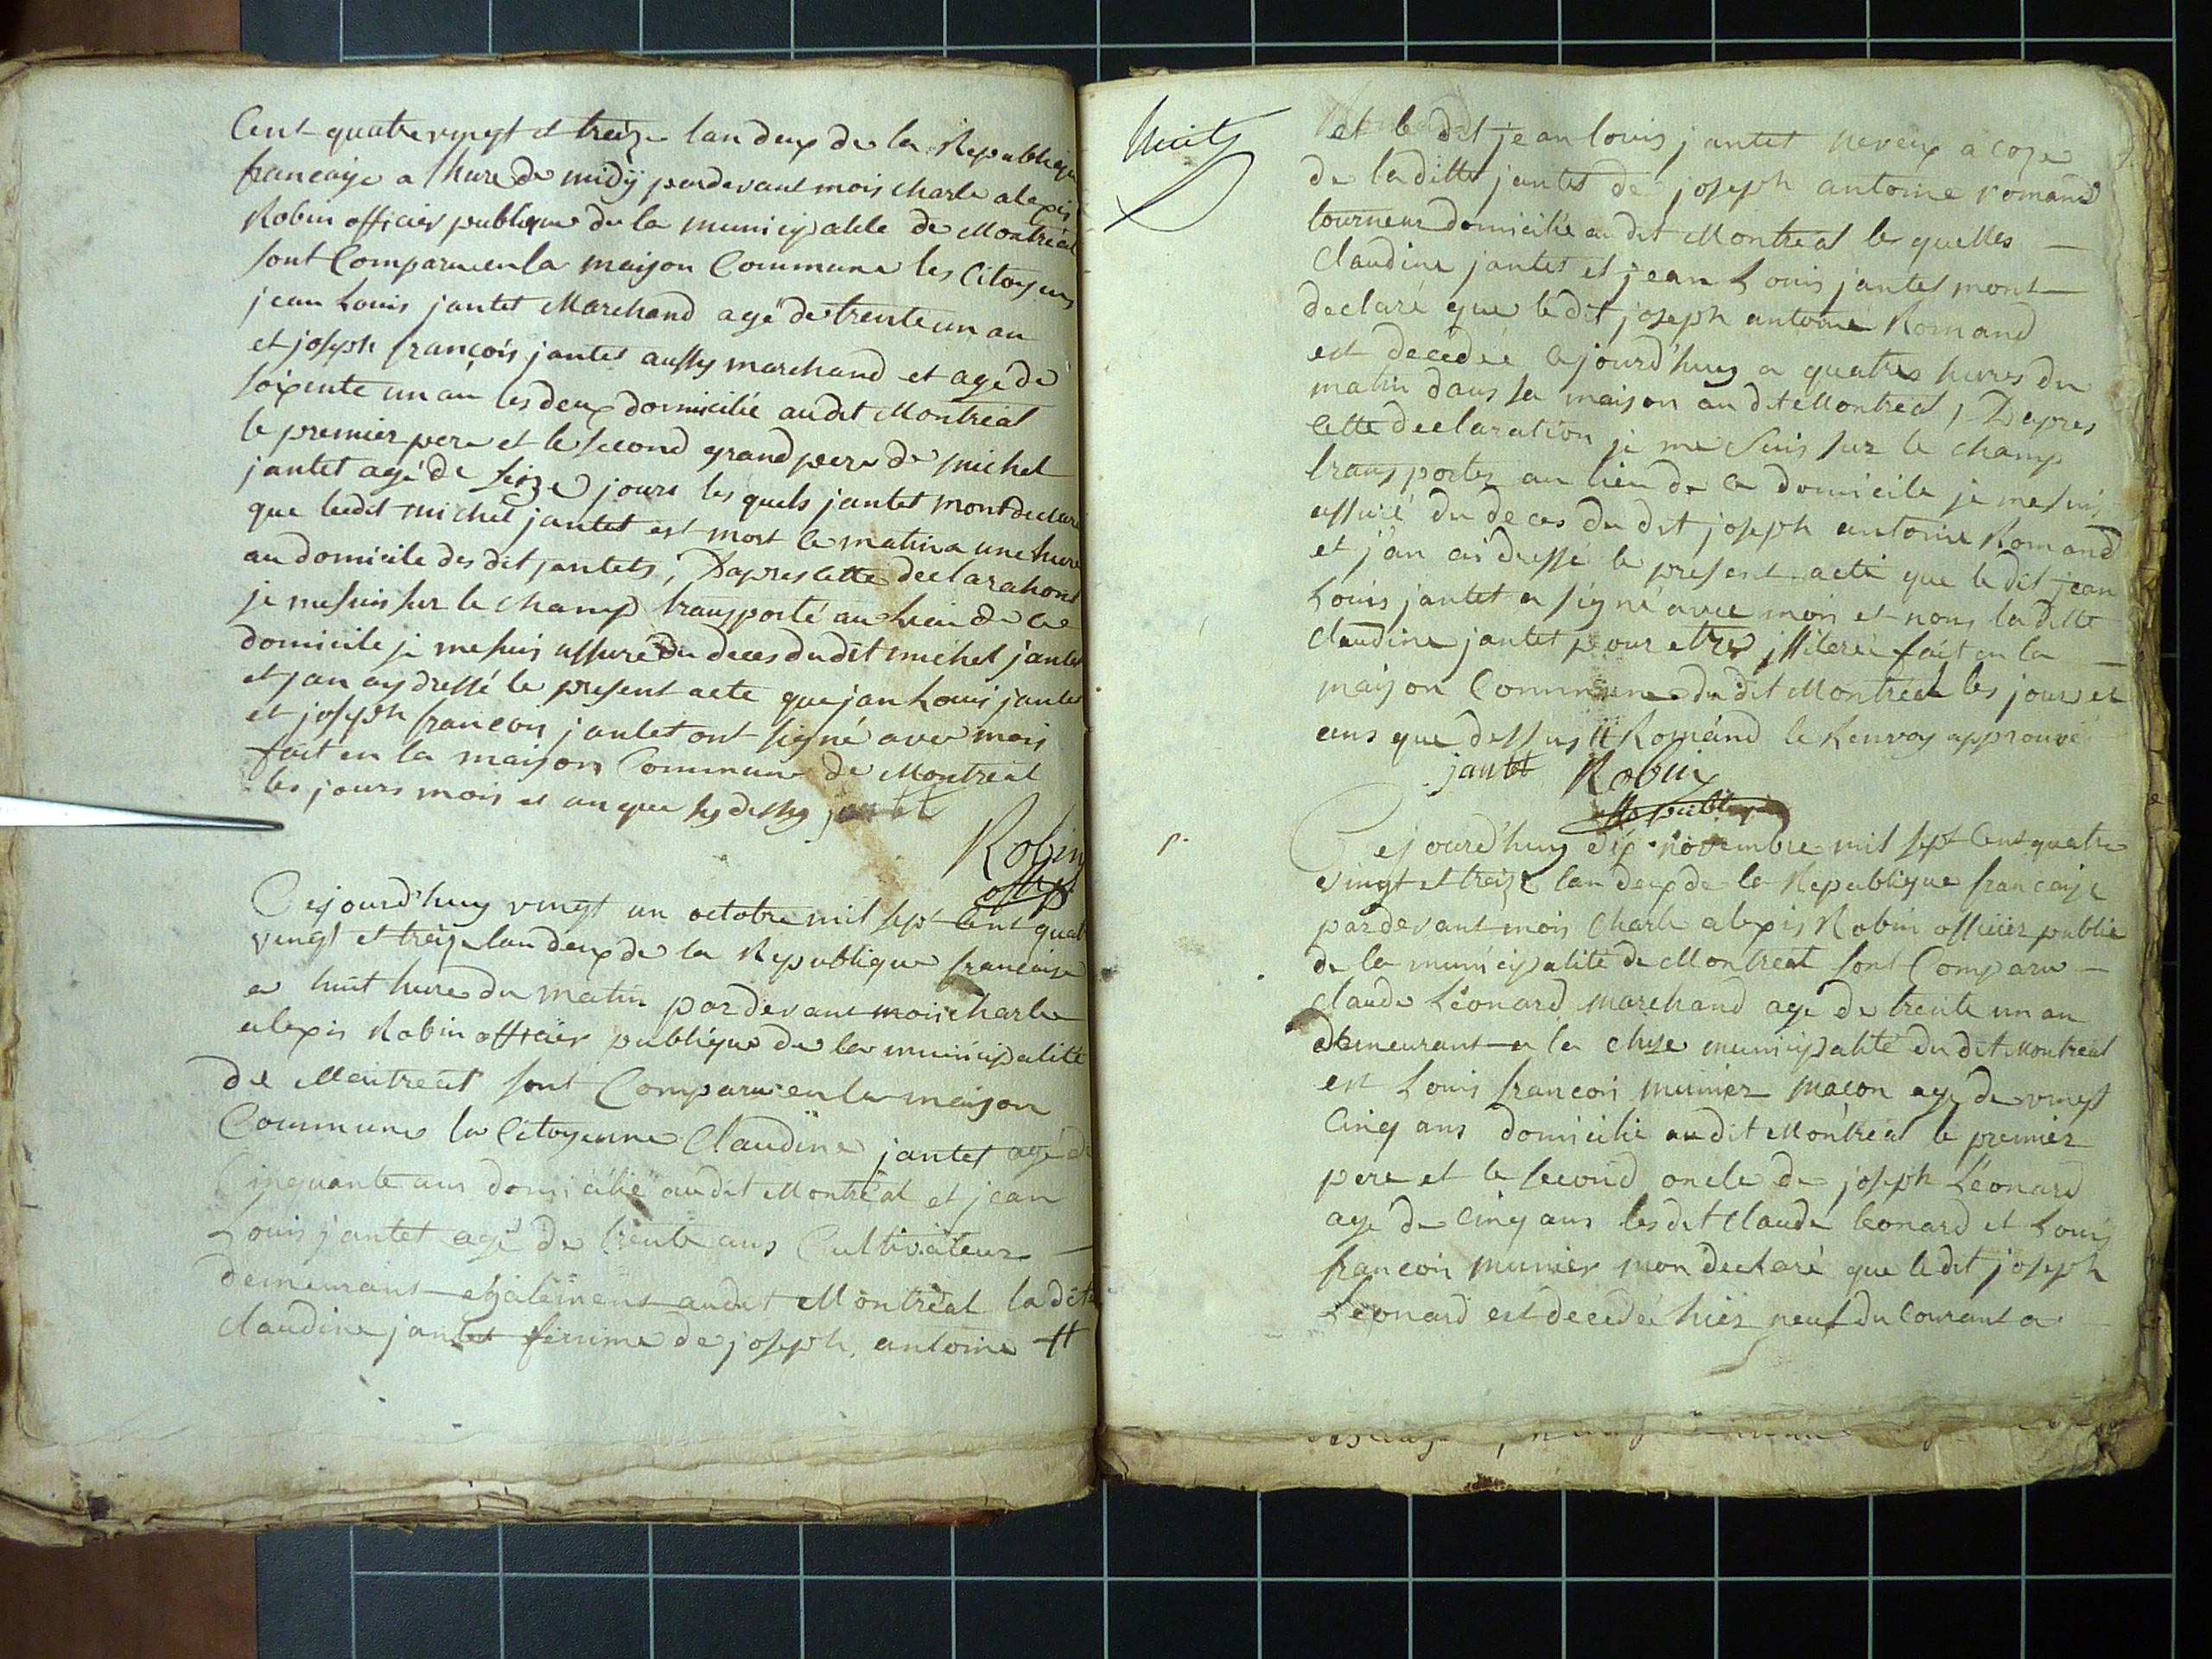 Cent quatre vingt et treize lan deux de la Republique
francaise a lhure de midÿ pardevant mois charle alexis
Robin officier publique de la municipalité de Montreal
sont Comparu en la maison Commune les Citoyens
jean Louis jantet Marchand agé de trente un an
et joseph françois jantet aussy marchand et agé de
soixente un an les deux domicilié audit Montréal
le premier pere et le second grand pere de michel
jantet agé de seize jours les quels jantet mont declaré
que ledit michel jantet est mort ce matin a une hure
au domicile des dit jantets, Dapres cette declarations
je me suis sur le champ transporté au lieu de ce
domicile je me suis assuré du deces dudit michel jantet
et jan ay dressé le present acte que jan Louis jantet
et joseph francois jantet ont signé avec mois
fait en la maison Commune de Montreal
les jours mois et an que sydessus jantet
Robin
off p
Cejourd'huy vingt un octobre mil sept Cent quatre
vingt et treize lan deux de la Republique francaise
a huit hure du matin pardevant mois charle
alexis Robin officier publique de la municipalité
de Montreal sont Comparu en la maison
Commune la Citoyenne Claudine jantet agé de
Cinquante ans domicilié audit Montreal et jean
Louis jantet agé de trente ans Cultivateur
demeurant egalement audit Montréal ladite
claudine jantet femme de joseph antoine #
huits
et le dit jean louis jantet neveux a coze
de laditte jantet de joseph antoine romand
tourneur domicilié au dit Montreal les quelles
Claudine jantet et jean Louis jantet mont
declaré que ledit joseph antoine Romand
est decedée cejourd'huy a quatres hures du
matin dans sa maison au dit Montreal, Dapres
cette declaration je me suis sur le champ
transportez au lieu de ce domicile je me suis
assuré du deces du dit joseph antoine Romand
et j'an ai dressé le present acte que le dit jean
Louis jantet a signé avec mois et nons la ditte
Claudine jantet pour etre illiterée fait en la
maison Commune du dit Montreal les jour et
ans que dessus # Romand le Renvoy approuvé
jantet Robin
off public
p.
Cejourd'huy dix novembre mil sept Cent quatre
vingt et treize lan deux de la Republique francaise
pardevant mois Charle alexis Robin officier public
de la municipalité de Montreal sont Comparu
claude Léonard marchand age de trente un an
demeurant a la cluse municipalité du dit Montreal
est Louis francois munier maçon age de vingt
Cinq ans domicilié audit Montréal le premier
pere et le second oncle de joseph Léonard
age de cinq ans lesdit claude leonard et Louis
francois munier mon declaré que le dit joseph
Léonard est decedée hier neuf du Courant a